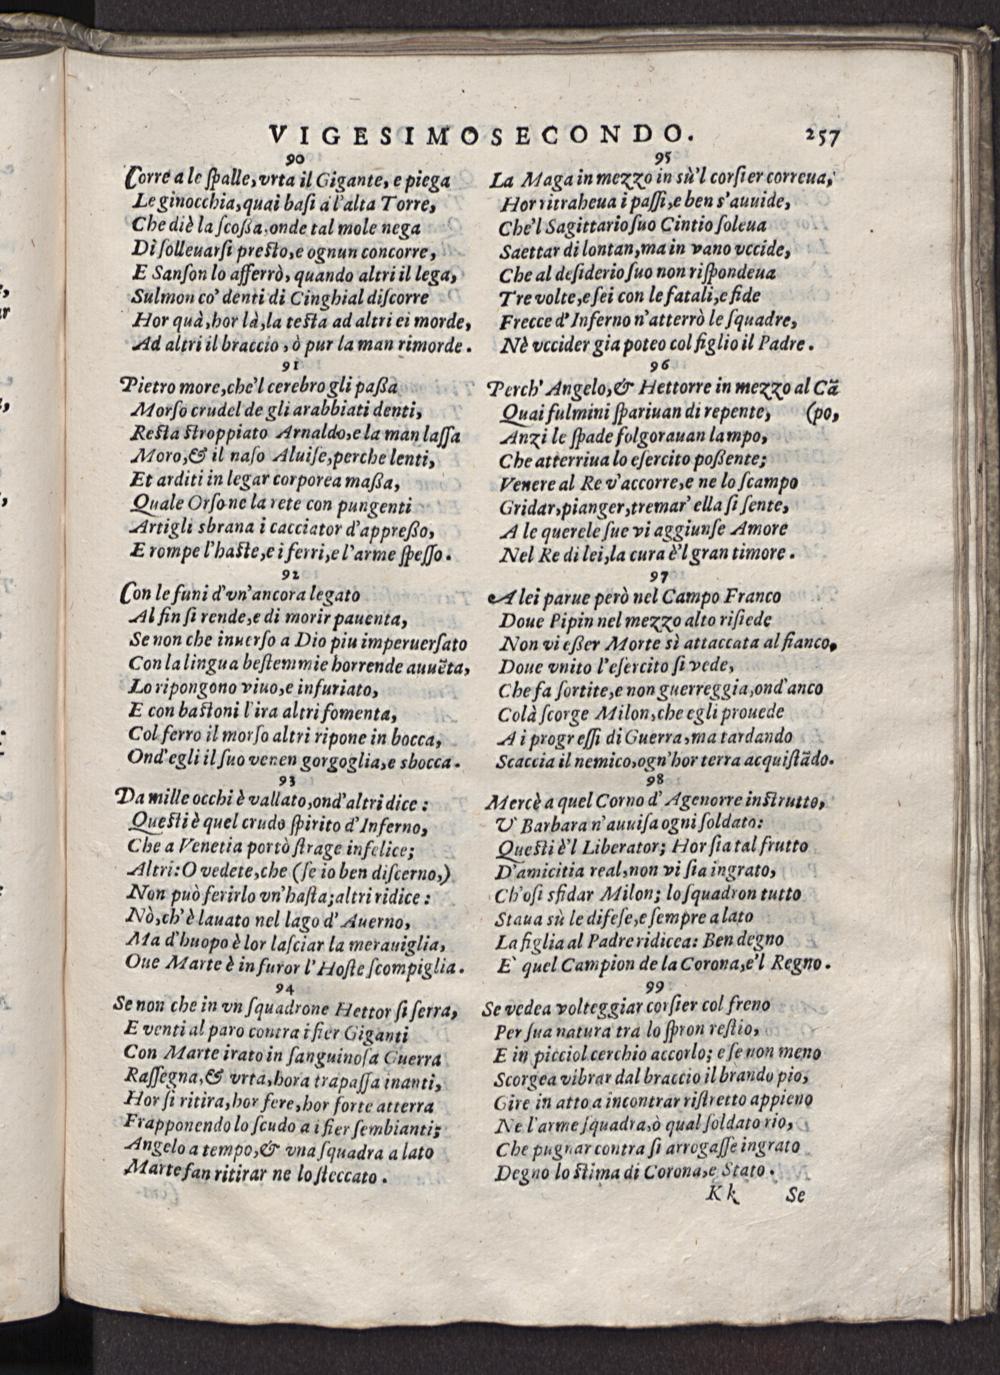 VIGESIMOSECONDO. 257
90
Corre a le ſpalle, vrta il Gigante, e piega
Le ginocchia, quai baſi a l'alta Torre,
Che diè la ſcoßa, onde tal mole nega
Di ſolleuarſi preſto, e ognun concorre,
E Sanſon lo afferrò, quando altri il lega,
Sulmon co' denti di Cinghial diſcorre
Hor quà, hor là, la teſta ad altri ei morde,
Ad altri il braccio, ò pur la man rimorde.
91
Pietro more, che'l cerebro gli paßa
Morſo crudel de gli arabbiati denti,
Reſta ſtroppiato Arnaldo, e la man laſſa
Moro, & il naſo Aluiſe, perche lenti,
Et arditi in legar corporea maßa,
Quale Orſo ne la rete con pungenti
Artigli sbrana i cacciator d'appreßo,
E rompe l'haſte, e i ferri, e l'arme ſpeſſo.
92
Con le funi d'vn'ancora legato
Al fin ſi rende, e di morir pauenta,
Se non che inuerſo a Dio piu imperuerſato
Con la lingua beſtemmie horrende auuēta,
Lo ripongono viuo, e infuriato,
E con baſtoni l'ira altri fomenta,
Col ferro il morſo altri ripone in bocca,
Ond'egli il ſuo venen gorgoglia, e sbocca.
93
Da mille occhi è vallato, ond'altri dice:
Queſti è quel crudo ſpirito d'Inferno,
Che a Venetia portò ſtrage infelice;
Altri: O vedete, che (ſe io ben diſcerno,)
Non può ferirlo vn'haſta; altri ridice:
Nò, ch'è lauato nel lago d'Auerno,
Ma d'huopo è lor laſciar la merauiglia,
Oue Marte è in furor l'Hoſte ſcompiglia.
94
Se non che in vn ſquadrone Hettor ſi ſerra,
E venti al paro contra i fier Giganti
Con Marte irato in ſanguinoſa Guerra
Raſſegna, & vrta, hora trapaſſa inanti,
Hor ſi ritira, hor fere, hor forte atterra
Frapponendo lo ſcudo a i fier ſembianti;
Angelo a tempo, & vna ſquadra a lato
Marte fan ritirar ne lo ſteccato.
95
La Maga in mezzo in sù'l corſier correua,
Hor ritraheua i paſſi, e ben s'auuide,
Che'l Sagittario ſuo Cintio ſoleua
Saettar di lontan, ma in vano vccide,
Che al deſiderio ſuo non riſpondeua
Tre volte, e ſei con le fatali, e fide
Frecce d'Inferno n'atterrò le ſquadre,
Nè vccider gia poteo col figlio il Padre.
96
Perch'Angelo, & Hettorre in mezzo al Cā
Quai fulmini ſpariuan di repente, (po,
Anzi le ſpade folgorauan lampo,
Che atterriua lo eſercito poßente;
Venere al Re v'accorre, e ne lo ſcampo
Gridar, pianger, tremar'ella ſi ſente,
A le querele ſue vi aggiunſe Amore
Nel Re di lei, la cura è'l gran timore.
97
A lei parue però nel Campo Franco
Doue Pipin nel mezzo alto riſiede
Non vi eßer Morte sì attaccata al fianco,
Doue vnito l'eſercito ſi vede,
Che fa ſortite, e non guerreggia, ond'anco
Colà ſcorge Milon, che egli prouede
A i progreſſi di Guerra, ma tardando
Scaccia il nemico, ogn'hor terra acquiſtādo.
98
Mercè a quel Corno d'Agenorre inſtrutto,
V' Barbara n'auuiſa ogni ſoldato:
Queſti è'l Liberator; Hor ſia tal frutto
D'amicitia real, non vi ſia ingrato,
Ch'oſi sfidar Milon; lo ſquadron tutto
Staua sù le difeſe, e ſempre a lato
La figlia al Padre ridicea: Ben degno
E' quel Campion de la Corona, e'l Regno.
99
Se vedea volteggiar corſier col freno
Per ſua natura tra lo ſpron reſtio,
E in picciol cerchio accorlo; e ſe non meno
Scorgea vibrar dal braccio il brando pio,
Gire in atto a incontrar riſtretto appieno
Ne l'arme ſquadra, ò qual ſoldato rio,
Che pugnar contra ſi arrogaſſe ingrato
Degno lo ſtima di Corona, e Stato.
Kk Se